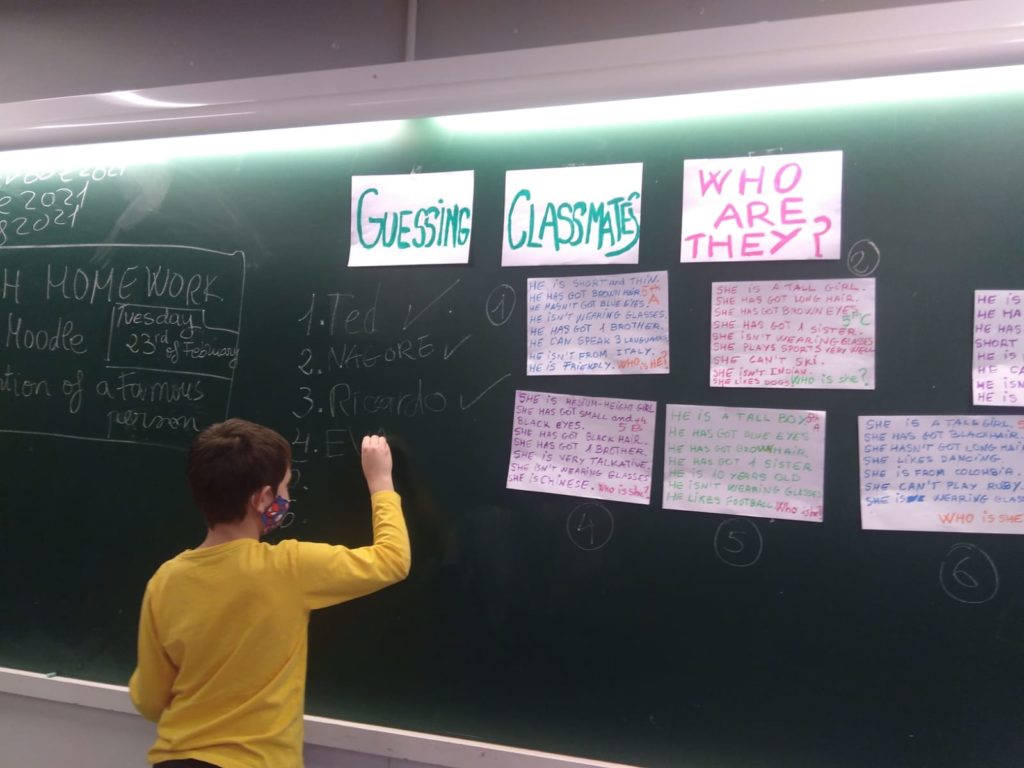 2021
2021
H HOMEWORK
Moodle
Tuesday
23rd
of February
tion of a Famous
person
GUESSING
CLASSMATES
WHO
ARE
THEY?
1. Ted ✓
2. NAGORE ✓
3. Ricardo ✓
4. EV
1
HE IS SHORT and THIN.
HE HAS GOT BROWN HAIR. 5
HE HASN'T GOT BLUE EYES. A
HE ISN'T WEARING GLASSES.
HE HAS GOT 1 BROTHER.
HE CAN SPEAK 3 LANGUAGES
HE ISN'T FROM ITALY.
HE IS FRIENDLY. WHO IS HE?
2
SHE IS A TALL GIRL.
SHE HAS GOT LONG HAIR.
SHE HAS GOT BROWN EYES. C
SHE HAS GOT 1 SISTER.
SHE ISN'T WEARING GLASSES
SHE PLAYS SPORTS VERY WELL
SHE CAN'T SKI.
SHE ISN'T INDIAN.
SHE LIKES DOGS WHO is she?
HE IS
HE HA
HE HAS
SHORT
HE IS
HE CA
HE ISN
HE IS
SHE IS MEDIUM-HEIGHT GIRL
SHE HAS GOT SMALL and
BLACK EYES. 5 B
SHE HAS GOT BLACK HAIR.
SHE HAS GOT 1 BROTHER.
SHE IS VERY TALKATIVE.
SHE ISN'T WEARING GLASSES
SHE IS CHINESE. Who is she?
4
HE IS A TALL BOY 5 A
HE HAS GOT BLUE EYES
HE HAS GOT BROWN HAIR.
HE HAS GOT 1 SISTER
HE IS 10 YEARS OLD
HE ISN'T WEARING GLASSES
HE LIKES FOOTBALL Who is she?
5
SHE IS A TALL GIRL. 5
SHE HAS GOT BLACK HAIR.
SHE HASN'T GOT LONG HAIR
SHE LIKES DANCING.
SHE IS FROM COLOMBIA.
SHE CAN'T PLAY RUGBY.
SHE IS WEARING GLASS
WHO IS SHE
6